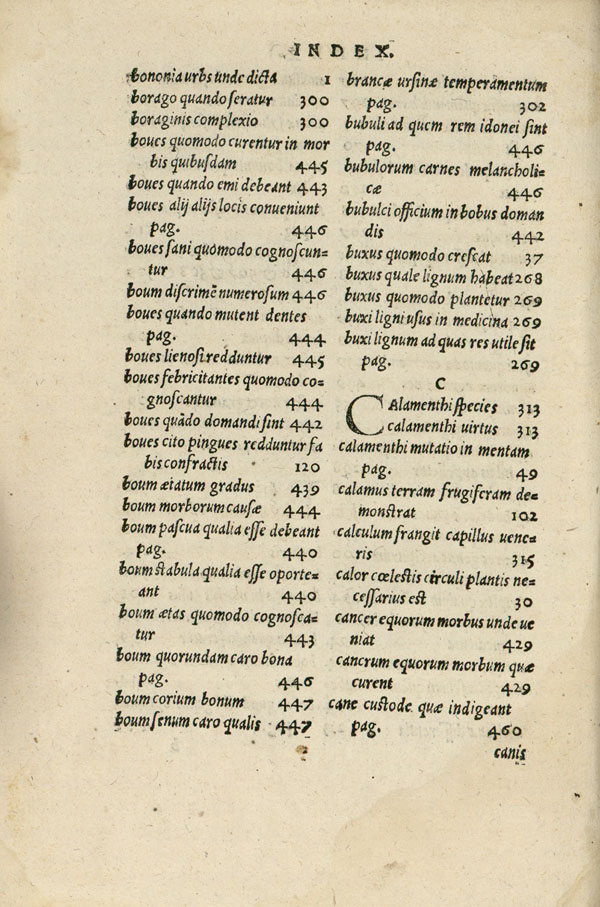 INDEX.
bononia urbs unde dicta 1
borago quando seratur 300
boraginis complexio 300
boues quomodo curentur in mor
bis quibusdam 445
boues quando emi debeant 443
boues alij alijs locis conueniunt
pag. 446
boues sani quomodo cognoscun=
tur 446
boum discrimē numerosum 446
boues quando mutent dentes
pag. 444
boues lienosi redduntur 445
boues febricitantes quomodo co=
gnoscantur 444
boues quādo domandi sint 442
boues cito pingues redduntur fa
bis confractis 120
boum ætatum gradus 439
boum morborum causæ 444
boum pascua qualia esse debeant
pag. 440
boum stabula qualia esse oporte=
ant 440
boum ætas quomodo cognosca=
tur 443
boum quorundam caro bona
pag. 446
boum corium bonum 447
boum senum caro qualis 447
brancæ ursinæ temperamentum
pag. 302
bubuli ad quem rem idonei sint
pag. 446
bubulorum carnes melancholi=
cæ 446
bubulci officium in bobus doman
dis 442
buxus quomodo crescat 37
buxus quale lignum habeat 268
buxus quomodo plantetur 269
buxi ligni usus in medicina 269
buxi lignum ad quas res utile sit
pag. 269
C
CAlamenthi species 313
calamenthi uirtus 313
calamenthi mutatio in mentam
pag. 49
calamus terram frugiferam de=
monstrat 102
calculum frangit capillus uene=
ris 315
calor cœlestis circuli plantis ne=
cessarius est 30
cancer equorum morbus unde ue
niat 429
cancrum equorum morbum quæ
curent 429
cane custode quæ indigeant
pag. 460
canis